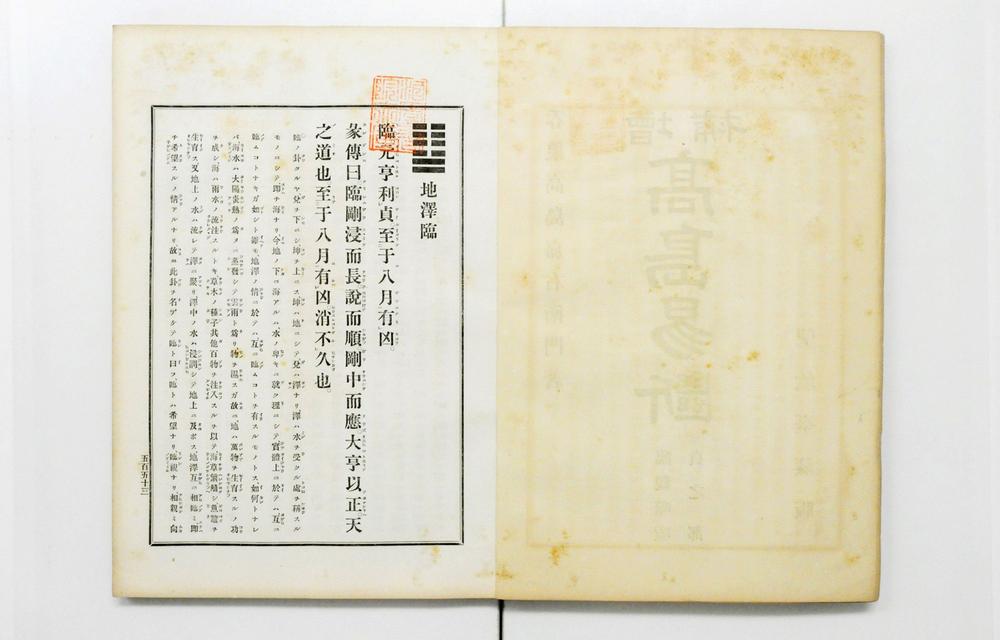 地澤臨
臨元亨利貞至于八月有凶。
彖傳曰臨剛浸而長說而順剛中而應大亨以正天
之道也至于八月有凶消不久也。
臨ノ卦タルヤ兌ヲ下ニシ坤ヲ上ニス坤ハ地ニシテ兌ハ澤ナリ澤ハ水ヲ受クル處ヲ稱スル
モノニシテ即チ海ナリ今地ノ下ニ海アルハ水ノ卑キニ就ク理ニシテ實體上ニ於テハ互ニ
臨ムコトナキガ如シト雖モ地澤ノ情ニ於テハ互ニ臨ムコトヲ有スルモノトス如何トナレ
バ海水ハ大陽炎熱ノ爲メニ蒸發シテ雲雨ト爲リ物ヲ濕スガ故ニ地ハ萬物ヲ生育スルノ功
ヲ成シ海ハ雨水ノ流注スルトキ草木ノ種子其他百物ヲ注入スルヲ以テ海草繁殖シ魚鼈ヲ
生育ス又地上ノ水ハ流レテ澤ニ聚リ澤中ノ水ハ浸潤シテ地上ニ及ボス地澤互ニ相臨ミ即
チ希望スルノ情アルナリ故ニ此卦ヲ名ヅケテ臨ト曰フ臨トハ希望ナリ臨視ナリ相觀ミ向
五百五十三
增補
高島易斷